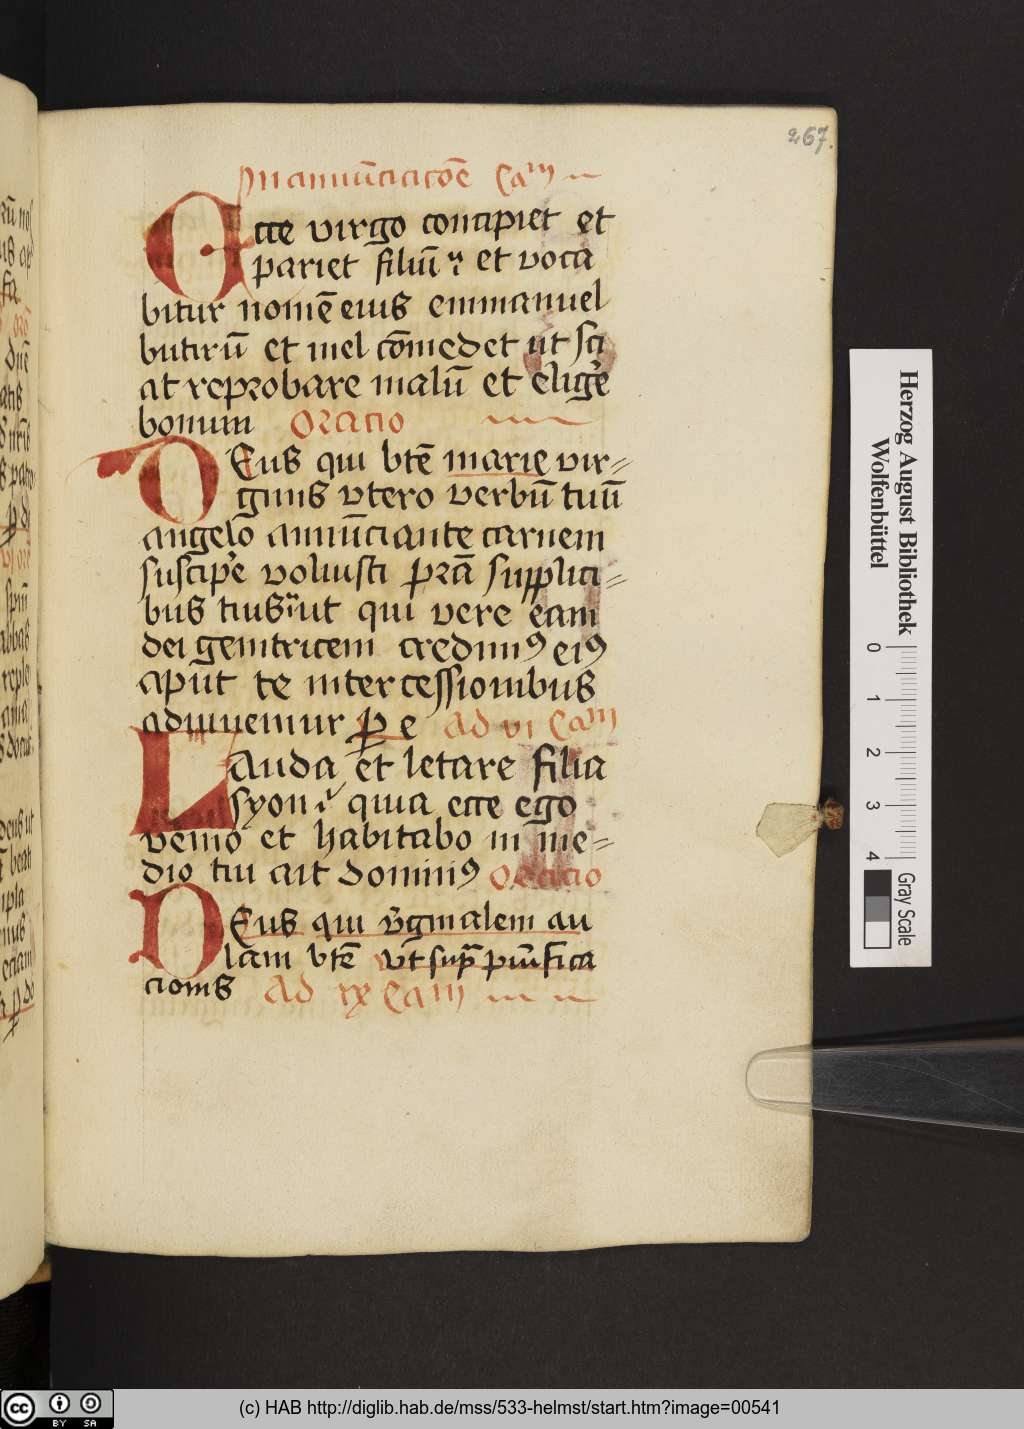 267.
In annunciacōe Cam
Ecce virgo concipiet et
pariet filiū et voca
bitur nomē eius emmanuel
butirū et mel cōmedet ut sci
at reprobare malū et eligere
bonum Oracio
Deus qui btē marie vir=
ginis vtero verbū tuū
angelo annūciante carnem
suscipe voluisti pzā supplici=
bus tuis ut qui vere eam
dei genitricem credimꝰ eiꝰ
aput te intercessionibus
adiuuemur ꝑ e ad vi Cam
Lauda et letare filia
syon quia ecce ego
venio et habitabo in me=
dio tui ait dominꝰ Oracio
Deus qui virginalem au
lam btē vt supra purifica
cionis ad ix Cam
Herzog August Bibliothek
Wolfenbüttel
0 1 2 3 4
Gray Scale
cc BY SA
(c) HAB http://diglib.hab.de/mss/533-helmst/start.htm?image=00541